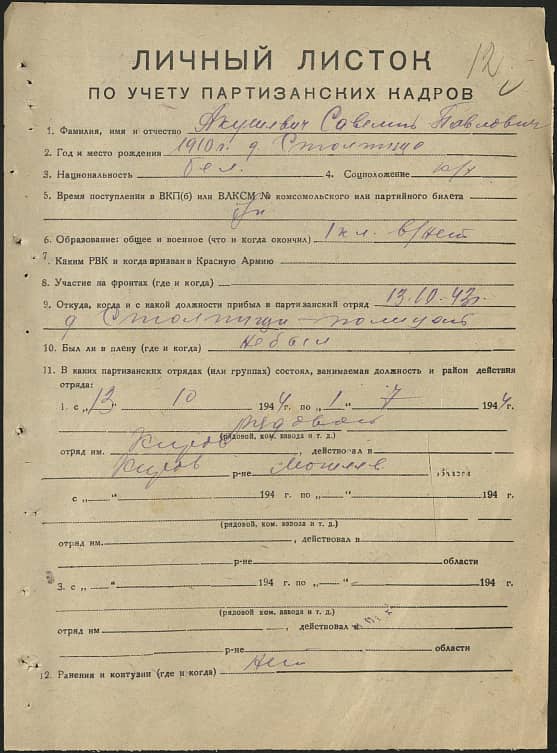 12
ЛИЧНЫЙ ЛИСТОК
ПО УЧЕТУ ПАРТИЗАНСКИХ КАДРОВ
1. Фамилия, имя и отчество Якушевич Савелий Павлович
2. Год и место рождения 1910 г. д. Столпище
3. Национальность бел. 4. Соцположение кр/к
5. Время поступления в ВКП(б) или ВЛКСМ № комсомольского или партийного билета
6. Образование: общее и военное (что и когда окончил) 1 кл. в/нет
7. Каким РВК и когда призван в Красную Армию
8. Участие на фронтах (где и когда)
9. Откуда, когда и с какой должности прибыл в партизанский отряд 13.10.43г.
д Столпищи – полицай
10. Был ли в плену (где и когда) не был
11. В каких партизанских отрядах (или группах) состоял, занимаемая должность и район действия
отряда:
1. с „13“ 10 1944 г. по „1“ 7 1944 г.
рядовой
(рядовой, ком. взвода и т. д.)
отряд им. Киров, действовал в
Киров р-не Могилев области
с „ “ 194 г. по „ “ 194 г.
(рядовой, ком. взвола и т. д.)
отряд им. , действовал в
р-не области
3. с „ “ 194 г. по „ “ 194 г.
(рядовой, ком. взвода и т. д.)
отряд им , действовал
р-не области
12. Ранения и контузии (где и когда) нет